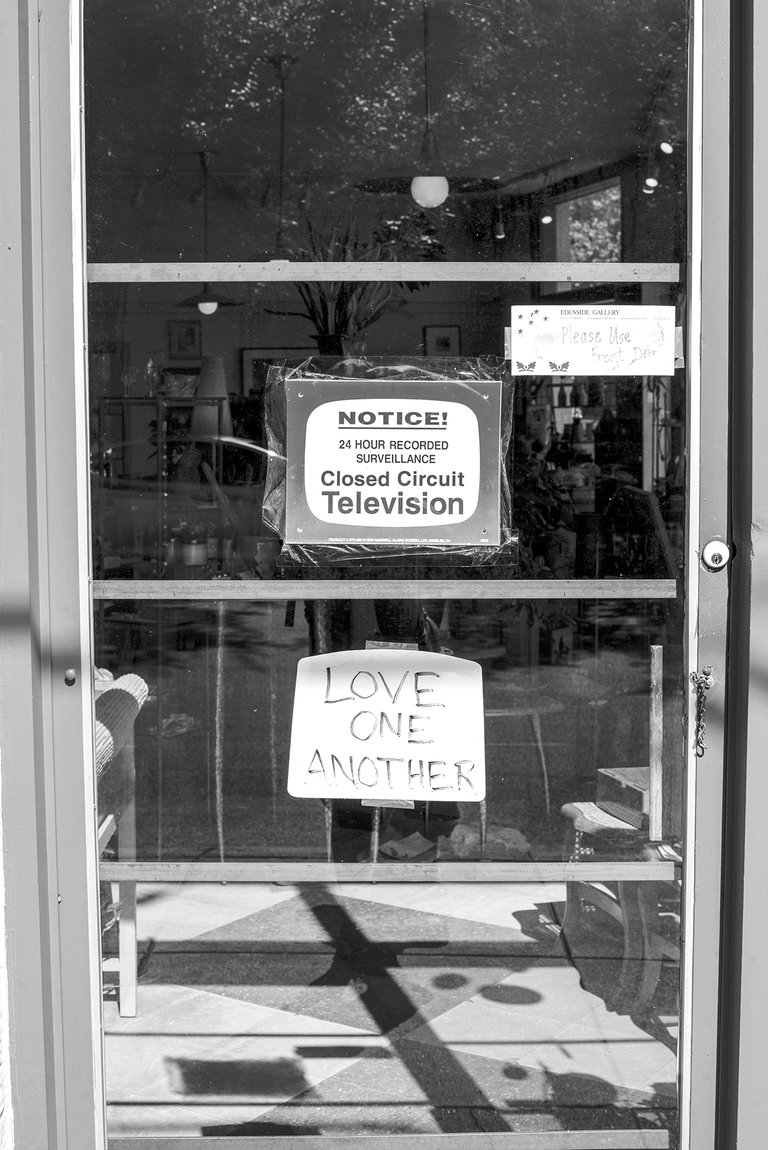 EDENSIDE GALLERY
Please Use
Front Door
NOTICE!
24 HOUR RECORDED
SURVEILLANCE
Closed Circuit
Television
LOVE
ONE
ANOTHER